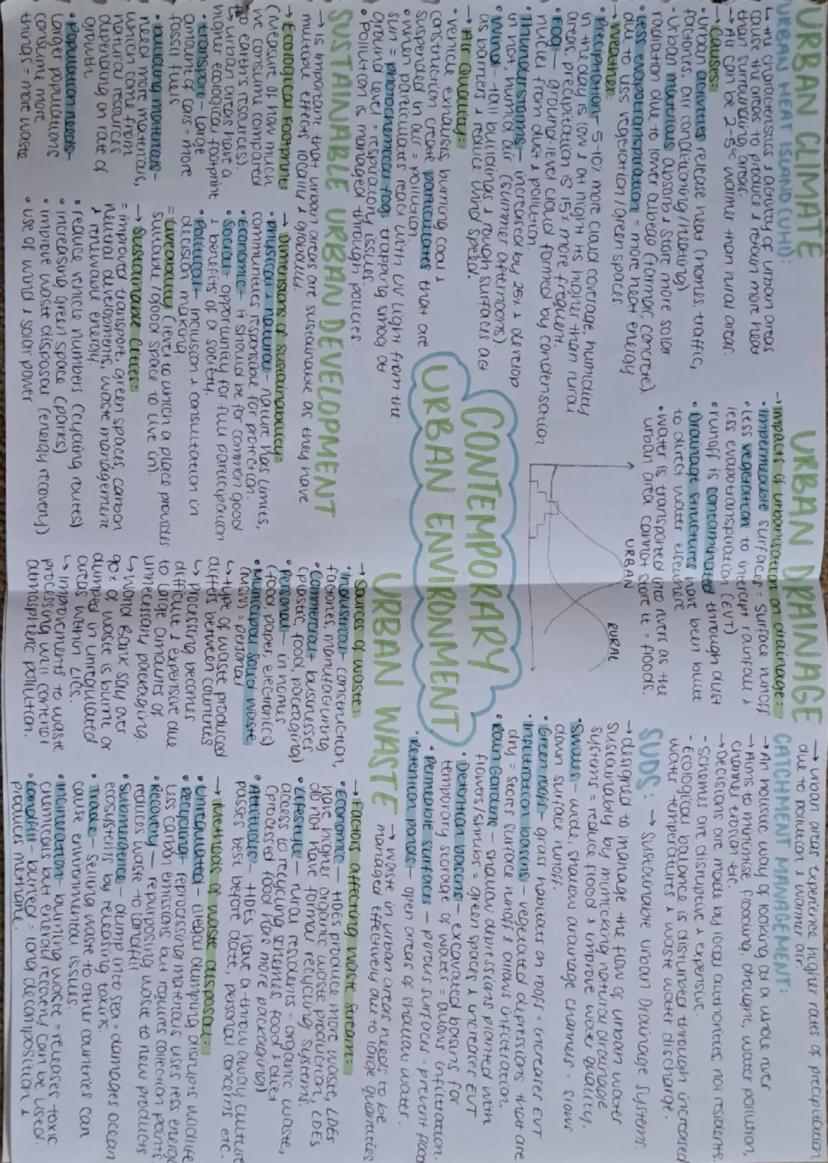 URBAN CLIMATE
URBAN HEAT ISLAND (UHI):
↳ the characteristics & density of urban areas
cause these areas to produce & retain more heat
than surrounding areas.
↳ it can be 2-5°c warmer than rural areas.
→ Causes:
• Urban activities release heat (homes, traffic,
factories, air conditioning/heating)
• Urban materials absorb & store more solar
radiation due to lower albedo (tarmac, concrete).
• Less evapotranspiration = more heat energy
due to less vegetation/green spaces.
→ Weather:
• Precipitation - 5-10% more cloud coverage, humidity
in the day is low & at night its higher than rural
areas, precipitation is 15% more frequent.
• Fog - ground-level cloud formed by condensation
nuclei from dust & pollution.
• Thunderstorms - increased by 25% & develop
in hot humid air (summer afternoons).
• Wind - tall buildings & rough surfaces act
as barriers & reduce wind speed.
→ Air Quality:
• vehicle exhausts, burning coal &
construction create particulates that are
suspended in air = pollution.
• when particulates react with UV light from the
sun = photochemical fog, trapping smog at
ground level = respiratory issues.
• Pollution is managed through policies.
SUSTAINABLE URBAN DEVELOPMENT
→ is important that urban areas are sustainable as they have
multiple effects locally & globally.
→ Ecological Footprint
(measure of how much
we consume compared
to earth's resources).
↳ urban areas have a
higher ecological footprint
• transport - large
amount of cars = more
fossil fuels
• building materials -
need more materials,
which come from
natural resources
depending on rate of
growth
• Population needs -
larger populations
consume more
things = more waste
→ Dimensions of sustainability:
• Physical & natural - nature has limits,
communities responsible for protection.
• Economic - it should be for common good
• Social - opportunity for full participation
& benefits of a society.
• Political - inclusion & consultation in
decision making.
= Liveability (extent to which a place provides
suitable/good space to live in).
→ Sustainable cities:
= improved transport, green spaces, carbon
neutral developments, waste management
& renewable energy.
• reduce vehicle numbers (cycling routes)
• increasing green space (parks)
• improve waste disposal (energy recovery)
• use of wind & solar power
CONTEMPORARY
URBAN ENVIRONMENT
URBAN DRAINAGE
→ Impacts of urbanisation on drainage:
• Impermeable surfaces = surface runoff
• Less vegetation to intercept rainfall &
less evapotranspiration (EVT)
• runoff is contaminated through dust
• Drainage structures have been built
to direct water elsewhere
• Water is transported into rivers as the
urban area cannot store it = floods.
URBAN
RURAL
→ urban areas experience higher rates of precipitation
due to pollution & warmer air.
CATCHMENT MANAGEMENT:
→ An holistic way of looking at a whole river
→ Aims to minimise flooding, drought, water pollution,
channel erosion etc.
→ Decisions are made by local authorities, not residents
- Schemes are disruptive & expensive.
- Ecological balance is disturbed through increased
water temperatures & waste water discharge.
SUDS: → Sustainable Urban Drainage Systems.
→ designed to manage the flow of urban water
sustainably by mimicking natural drainage
systems = reduce flood & improve water quality.
• Swales - wide, shallow drainage channels = slows
down surface runoff.
• Green roofs - grass habitats on roofs = increases EVT
• Infiltration basins - vegetated depressions that are
dry = stores surface runoff & allows infiltration.
• Rain Gardens - shallow depressions planted with
flowers/shrubs = green spaces & increases EVT
• Detention basins - excavated basins for
temporary storage of water = allows infiltration.
• Permeable surfaces - porous surfaces = prevent flood
• Retention ponds - open areas of shallow water.
URBAN WASTE
→ waste in urban areas needs to be
managed effectively due to large quantities
→ Sources of waste:
• Industrial - construction,
factories, manufacturing
• Commercial - businesses
(plastic, food, packaging)
• Personal - in homes
(food, paper, electronics)
• Municipal Solid Waste
(MSW) = personal
↳ type of waste produced
differs between countries
↳ Processing becomes
difficult & expensive due
to large amounts of
unnecessary packaging
↳ World Bank say over
90% of waste is burnt or
dumped in unregulated
areas within LICs.
↳ improvements to waste
processing will control
atmospheric pollution.
→ Factors affecting waste stream:
• Economic - HDEs produce more waste, LDEs
have higher organic waste production, LDEs
do not have formal recycling systems.
• Lifestyle - rural residents = organic waste,
access to recycling schemes, food & diet
(processed food has more packaging)
• Attitudes - HDEs have a throw away culture
passes best before date, personal concerns etc.
→ Methods of waste disposal:
• Unregulated - illegal dumping disrupts wildlife
• Recycling - reprocessing materials uses less energy
less carbon emissions but requires collection points
• Recovery - repurposing waste to new products
reduces waste to landfill
• Submergence - dump into sea = damages ocean
ecosystems by releasing toxins.
• Trade - selling waste to other countries can
cause environmental issues.
• Incineration - burning waste = releases toxic
chemicals but energy recovery can be used.
• Landfill - buried = long decomposition &
produces methane.